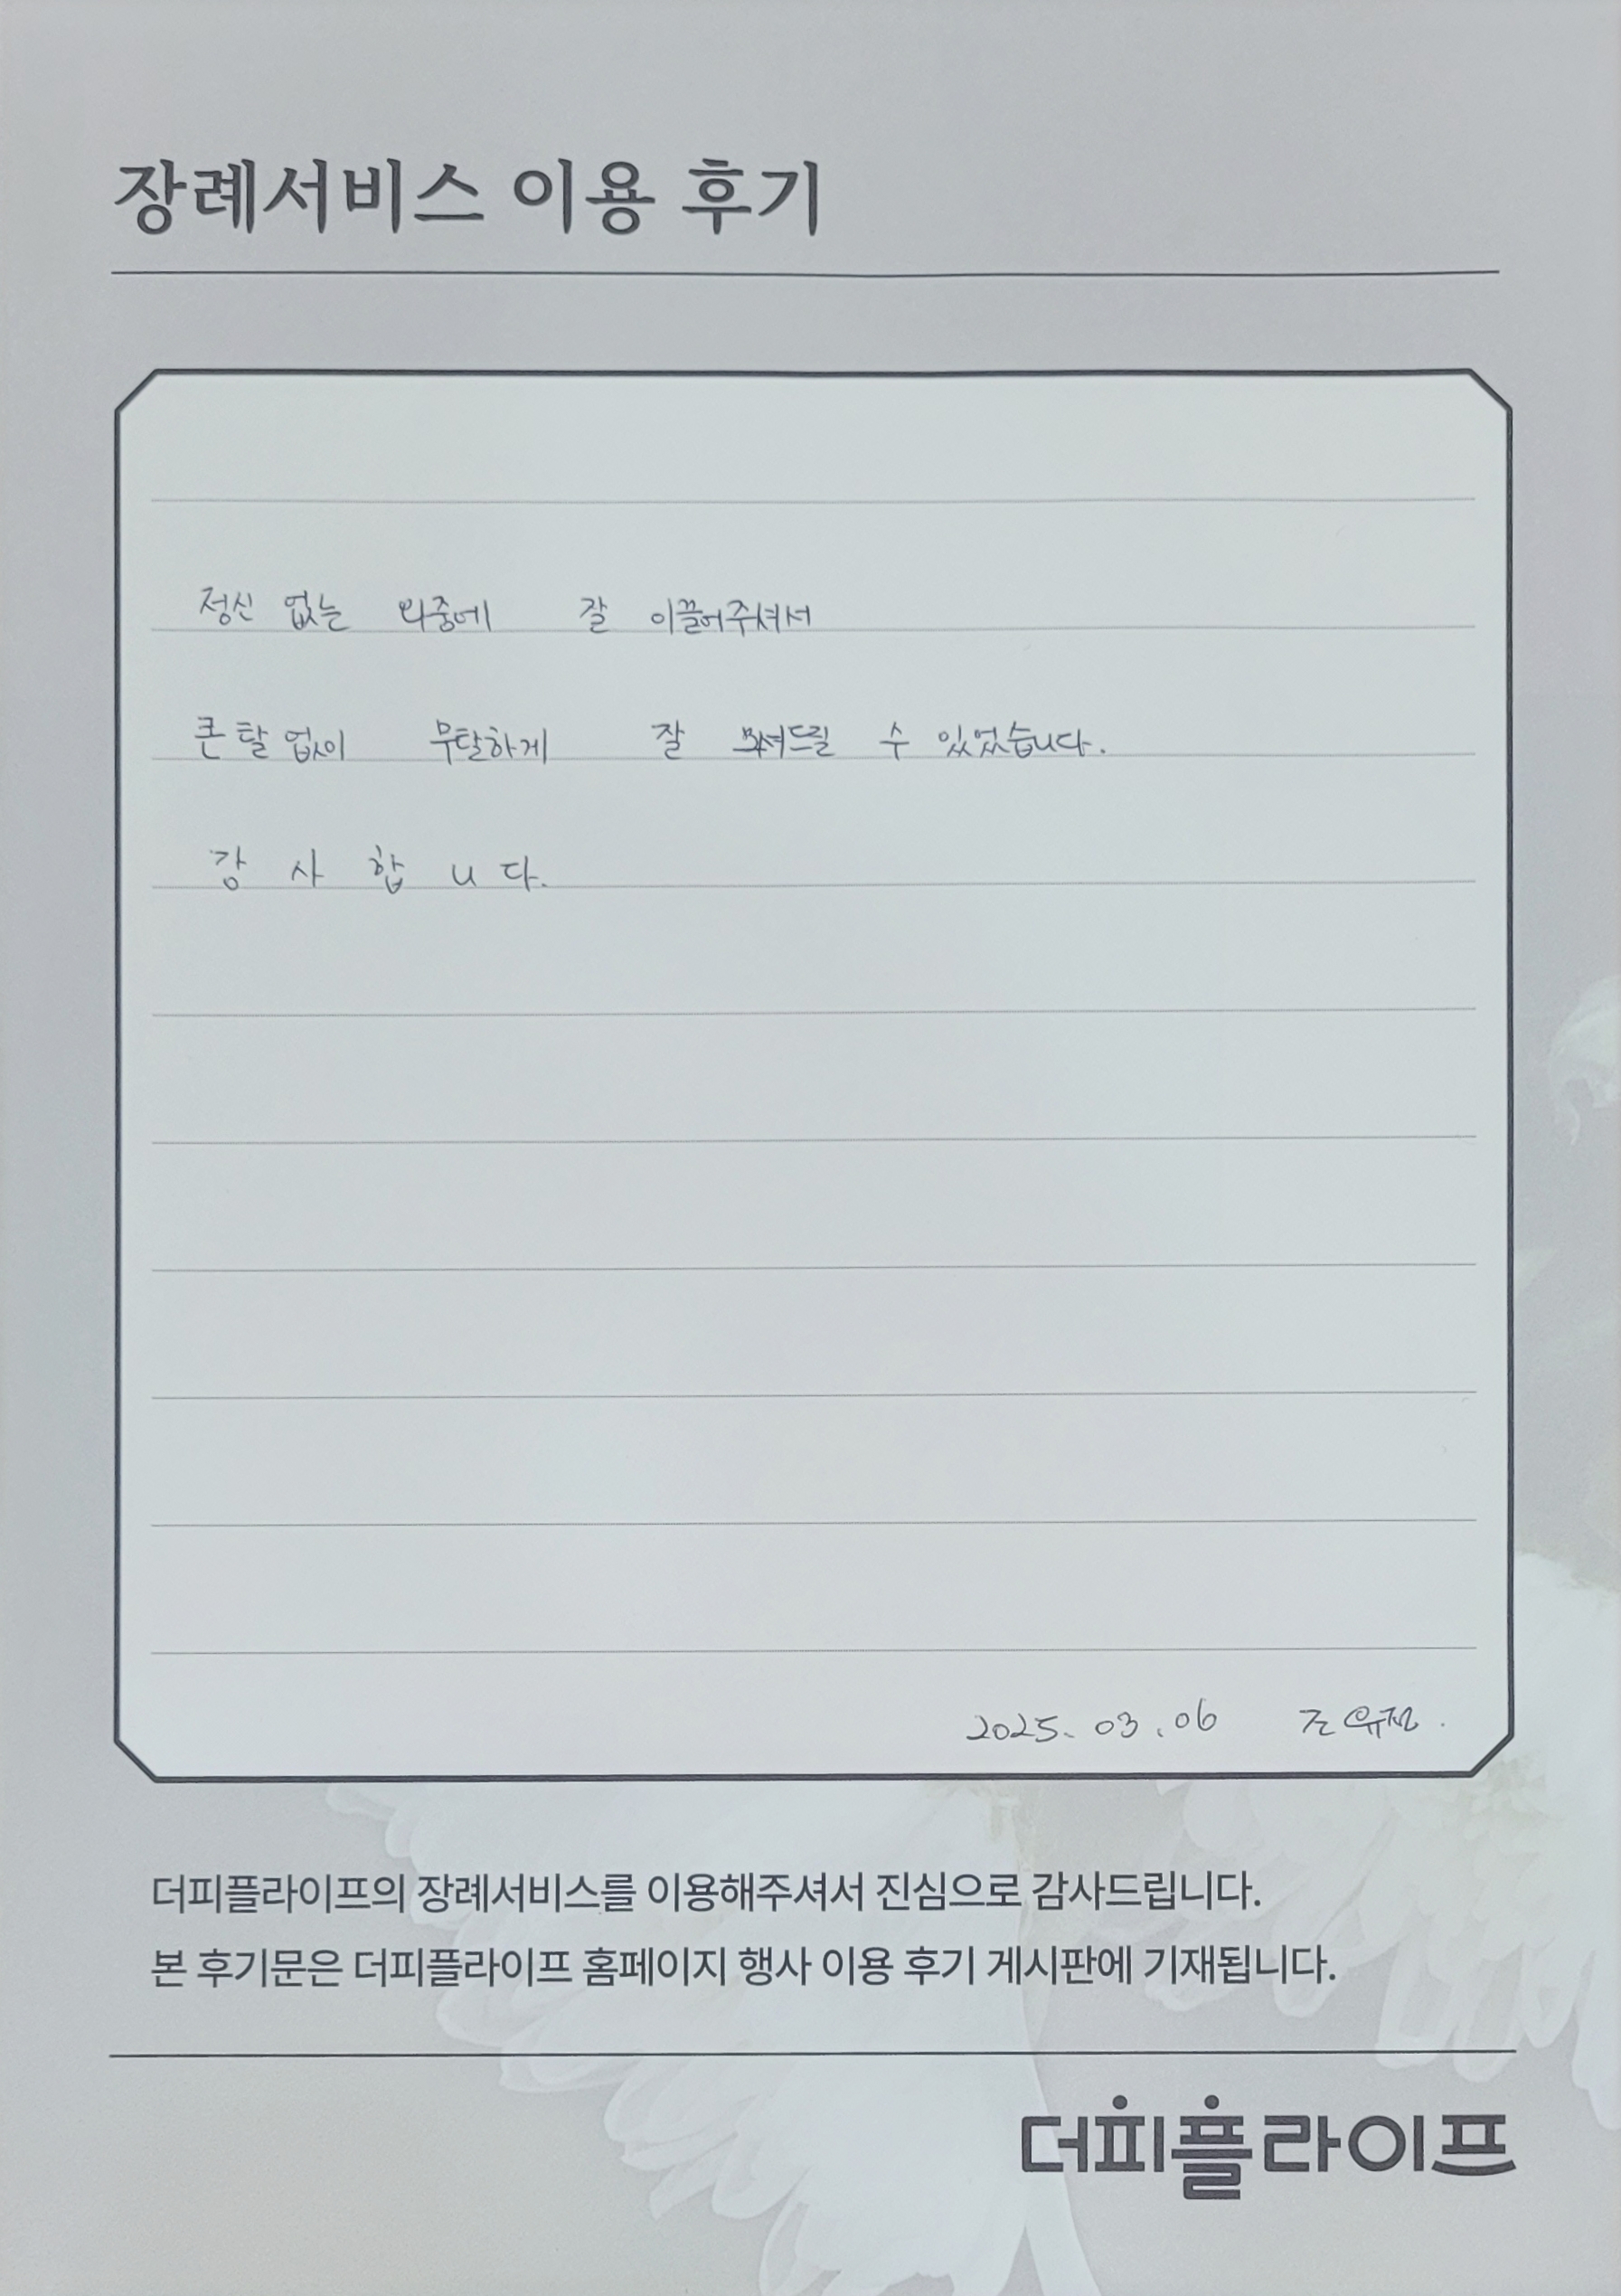 장례서비스 이용 후기
정신 없는 와중에 잘 이끌어주셔서
큰 탈 없이 무탈하게 잘 보내드릴 수 있었습니다.
감 사 합 니 다.
2025. 03. 06
더피플라이프의 장례서비스를 이용해주셔서 진심으로 감사드립니다.
본 후기문은 더피플라이프 홈페이지 행사 이용 후기 게시판에 기재됩니다.
더피플라이프